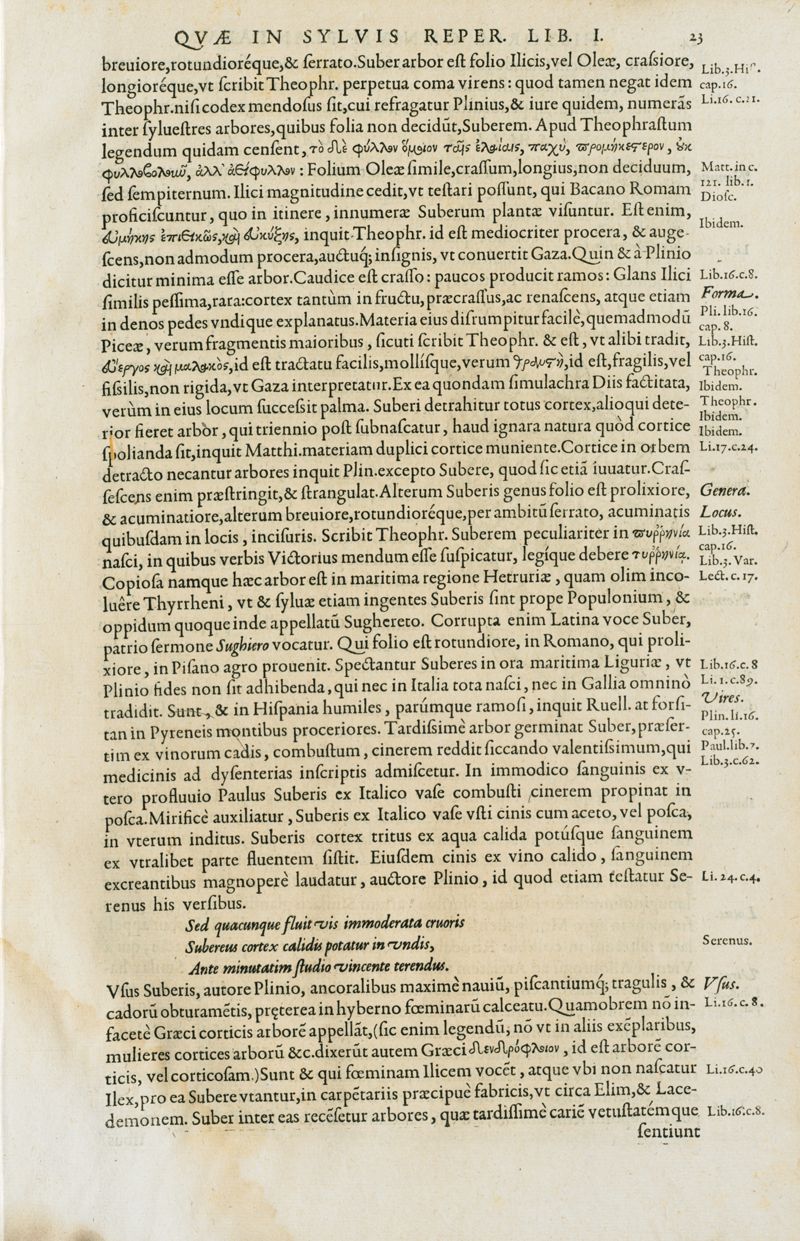 QVÆ IN SYLVIS REPER. LIB. I. 23
breuiore,rotundioréque,& ſerrato.Suber arbor eſt folio Ilicis,vel Oleæ, craſsiore, Lib.3.Hiſ.
longioréque,vt ſcribit Theophr. perpetua coma virens: quod tamen negat idem cap.16.
Theophr.niſi codex mendoſus ſit,cui refragatur Plinius,& iure quidem, numerãs Li.16. c.21.
inter ſylueſtres arbores,quibus folia non decidũt,Suberem. Apud Theophraſtum
legendum quidam cenſent, τὸ δὲ φύλλον ὅμοιον ταῖς ἐλαίαις, παχύ, προμηκέστερον, οὐκ
φυλλοβολοῦν, ἀλλ' ἀείφυλλον: Folium Oleæ ſimile,craſſum,longius,non deciduum, Matt.in c.
ſed ſempiternum. Ilici magnitudine cedit,vt teſtari poſſunt, qui Bacano Romam 121. lib.1.
Dioſc.
proficiſcuntur, quo in itinere, innumeræ Suberum plantæ viſuntur. Eſt enim, Ibidem.
εὐμήκης ἐπιεικῶς,καὶ εὐαυξής, inquit Theophr. id eſt mediocriter procera, & auge-
ſcens,non admodum procera,auctuq́; inſignis, vt conuertit Gaza.Quin & à Plinio
dicitur minima eſſe arbor.Caudice eſt craſſo: paucos producit ramos: Glans Ilici Lib.16.c.8.
ſimilis peſſima,rara:cortex tantùm in fructu,præcraſſus,ac renaſcens, atque etiam Forma.
in denos pedes vndique explanatus.Materia eius diſrumpitur facilè,quemadmodũ Pli.lib.16.
cap.8.
Piceæ, verum fragmentis maioribus, ſicuti ſcribit Theophr. & eſt, vt alibi tradit, Lib.3.Hiſt.
εὔεργος καὶ μαλακὸς,id eſt tractatu facilis,molliſque,verum θραυστὴ,id eſt,fragilis,vel cap.16.
Theophr.
fiſsilis,non rigida,vt Gaza interpretatur.Ex ea quondam ſimulachra Diis factitata, Ibidem.
verùm in eius locum ſucceſsit palma. Suberi detrahitur totus cortex,alioqui dete- Theophr.
Ibidem.
rior fieret arbor, qui triennio poſt ſubnaſcatur, haud ignara natura quòd cortice Ibidem.
ſpolianda ſit,inquit Matthi.materiam duplici cortice muniente.Cortice in orbem Li.17.c.24.
detracto necantur arbores inquit Plin.excepto Subere, quod ſic etiã iuuatur.Craſ-
ſeſcens enim præſtringit,& ſtrangulat.Alterum Suberis genus folio eſt prolixiore, Genera.
& acuminatiore,alterum breuiore,rotundioréque,per ambitũ ſerrato, acuminatis Locus.
quibuſdam in locis, inciſuris. Scribit Theophr. Suberem peculiariter in πυῤῥηνία Lib.3.Hiſt.
cap.16.
naſci, in quibus verbis Victorius mendum eſſe ſuſpicatur, legíque debere τυῤῥηνία. Lib.3. Var.
Copioſa namque hæc arbor eſt in maritima regione Hetruriæ, quam olim inco- Lect. c. 17.
luêre Thyrrheni, vt & ſyluæ etiam ingentes Suberis ſint prope Populonium, &
oppidum quoque inde appellatũ Sughereto. Corrupta enim Latina voce Suber,
patrio ſermone Sughiero vocatur. Qui folio eſt rotundiore, in Romano, qui proli-
xiore, in Piſano agro prouenit. Spectantur Suberes in ora maritima Liguriæ, vt Lib.16.c.8
Plinio fides non ſit adhibenda,qui nec in Italia tota naſci, nec in Gallia omninò Li. 1. c.89.
tradidit. Sunt, & in Hiſpania humiles, parúmque ramoſi, inquit Ruell. at forſi- Vires.
Plin.li.16.
tan in Pyreneis montibus proceriores. Tardiſsimè arbor germinat Suber,præſer- cap.25.
tim ex vinorum cadis, combuſtum, cinerem reddit ſiccando valentiſsimum,qui Paul.lib.7.
Lib.3.c.62.
medicinis ad dyſenterias inſcriptis admiſcetur. In immodico ſanguinis ex v-
tero profluuio Paulus Suberis ex Italico vaſe combuſti cinerem propinat in
poſca.Mirificè auxiliatur, Suberis ex Italico vaſe vſti cinis cum aceto, vel poſca,
in vterum inditus. Suberis cortex tritus ex aqua calida potúſque ſanguinem
ex vtralibet parte fluentem ſiſtit. Eiuſdem cinis ex vino calido, ſanguinem
excreantibus magnoperè laudatur, auctore Plinio, id quod etiam teſtatur Se- Li. 24.c.4.
renus his verſibus.
Sed quacunque fluit vis immoderata cruoris
Subereus cortex calidis potatur in vndis, Serenus.
Ante minutatim ſtudio vincente terendus.
Vſus Suberis, autore Plinio, ancoralibus maximè nauiũ, piſcantiumq́; tragulis, & Vſus.
cadorũ obturamẽtis, prẹterea in hyberno fœminarũ calceatu.Quamobrem nõ in- Li.16. c. 8.
facetè Græci corticis arborẽ appellãt,(ſic enim legendũ, nõ vt in aliis exẽplaribus,
mulieres cortices arborũ &c.dixerũt autem Græci δενδρόφλοιον, id eſt arborẽ cor-
ticis, vel corticoſam.)Sunt & qui fœminam Ilicem vocẽt, atque vbi non naſcatur Li.16.c.40
Ilex,pro ea Subere vtantur,in carpẽtariis præcipuè fabricis,vt circa Elim,& Lace-
demonem. Suber inter eas recẽſetur arbores, quæ tardiſſimè cariẽ vetuſtatémque Lib.16.c.8.
ſentiunt